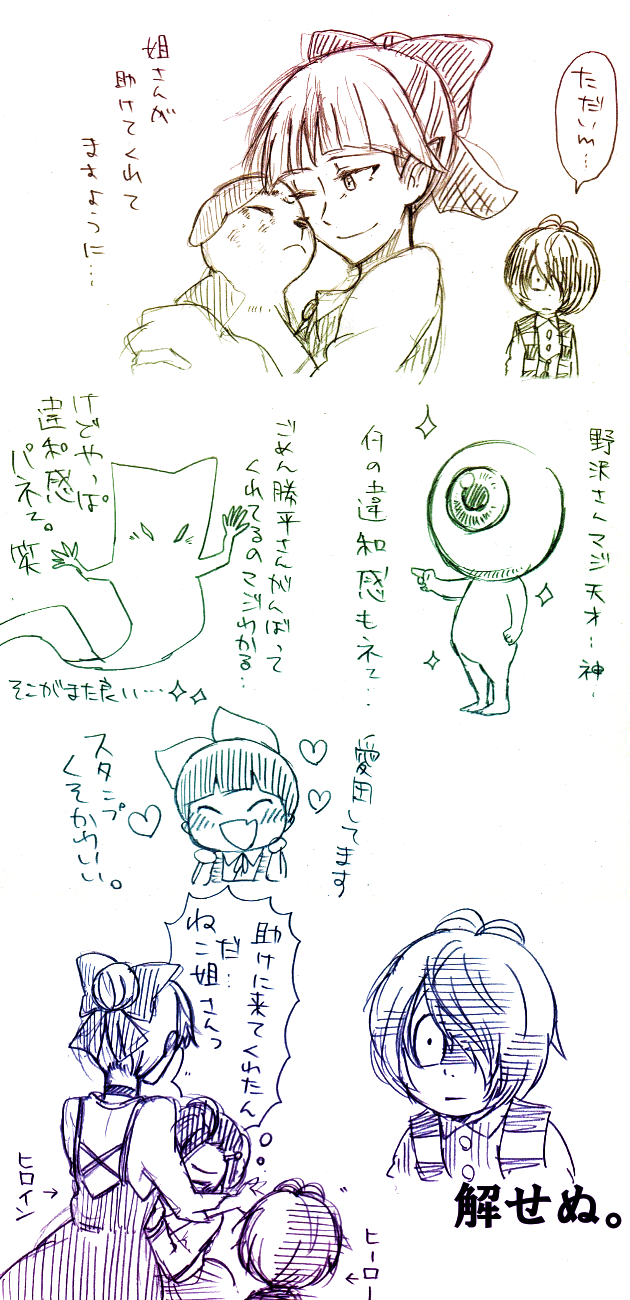 ただいm…
姐さんが
助けてくれて
ますように…
野沢さんマジ天才～神～
何の違和感もネて‥
ごめん勝平さんがんばって
くれてるのマジわかる‥
けどやっぱ
違和感
パネェ。笑
そこがまた良い…
愛用してます
スタンプ
くそかわいい。
助けに来てくれたん
だ…
ねこ姐さんっ
ヒロイン→
←ヒーロー
解せぬ。